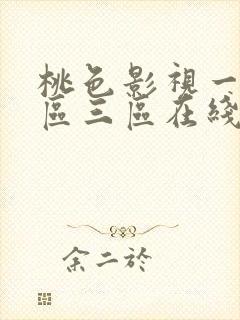 桃色影視一
區三區在綫
余二於